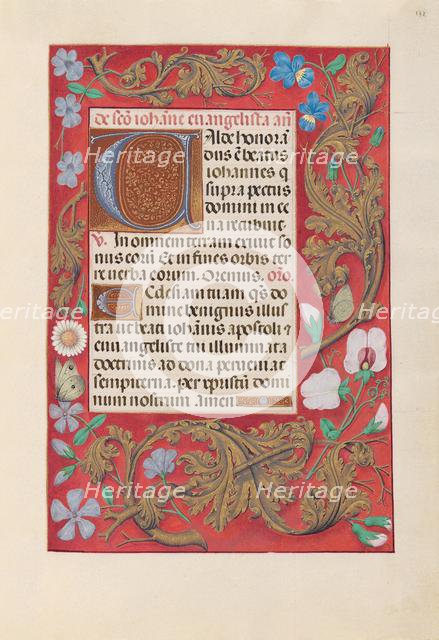 132
de sco iohane euangelista an
Valde honoran
dus e beatus
iohannes q
supra pectus
domini in ce
na recubuit
V. In omnem terram exiuit so
nus eorum Et in fines orbis ter
re verba eorum. Oremus. oro.
Ecclesiam tuam qs do
mine benignus illus
tra vt beati iohannis apostoli &
euangeliste tui illuminata
doctrinis ad dona perueniat
sempiterna. per xpistum domi
num nostrum amen
Heritage Images
Heritage Images
Heritage Images
Heritage Images
Heritage Images
Heritage Images
Heritage Images
Heritage Images